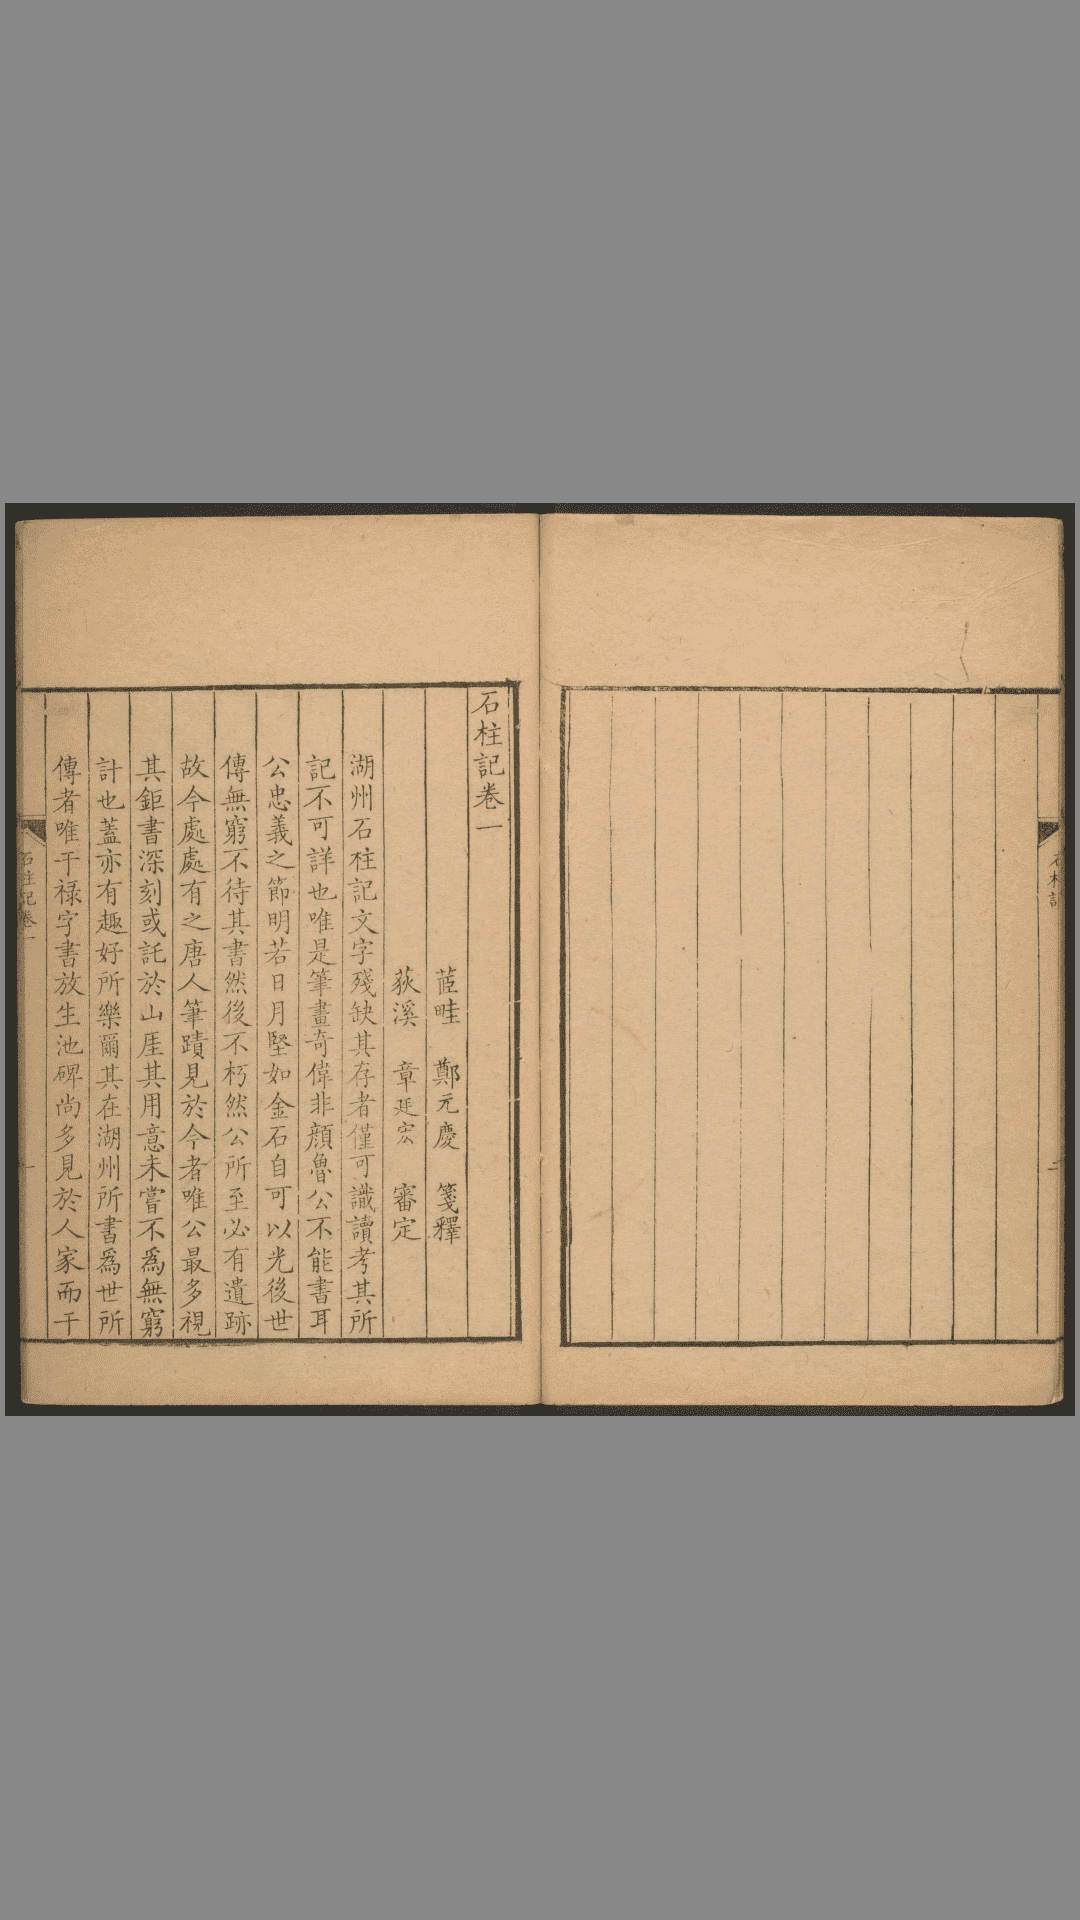 石柱記
二
石柱記卷一
茝畦　鄭元慶　箋釋
荻溪　章廷宏　審定
湖州石柱記文字殘缺其存者僅可識讀考其所
記不可詳也唯是筆畫奇偉非顏魯公不能書耳
公忠義之節明若日月堅如金石自可以光後世
傳無窮不待其書然後不朽然公所至必有遺跡
故今處處有之唐人筆蹟見於今者唯公最多視
其鉅書深刻或託於山厓其用意未嘗不為無窮
計也蓋亦有趣好所樂爾其在湖州所書為世所
傳者唯干祿字書放生池碑尚多見於人家而干
石柱記卷一
一